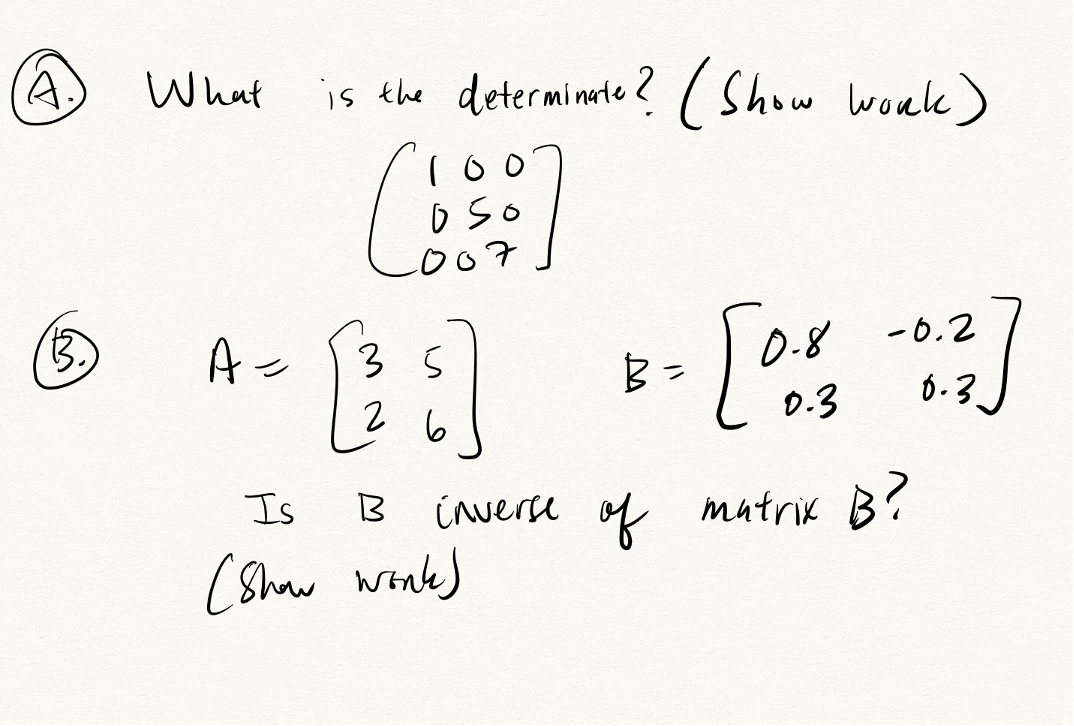 A. What is the determinate? (Show work)
1 0 0
0 5 0
0 0 7
B. A = [3 5 B = [0.8 -0.2
2 6] 0.3 0.3]
Is B inverse of matrix B?
(Show work)